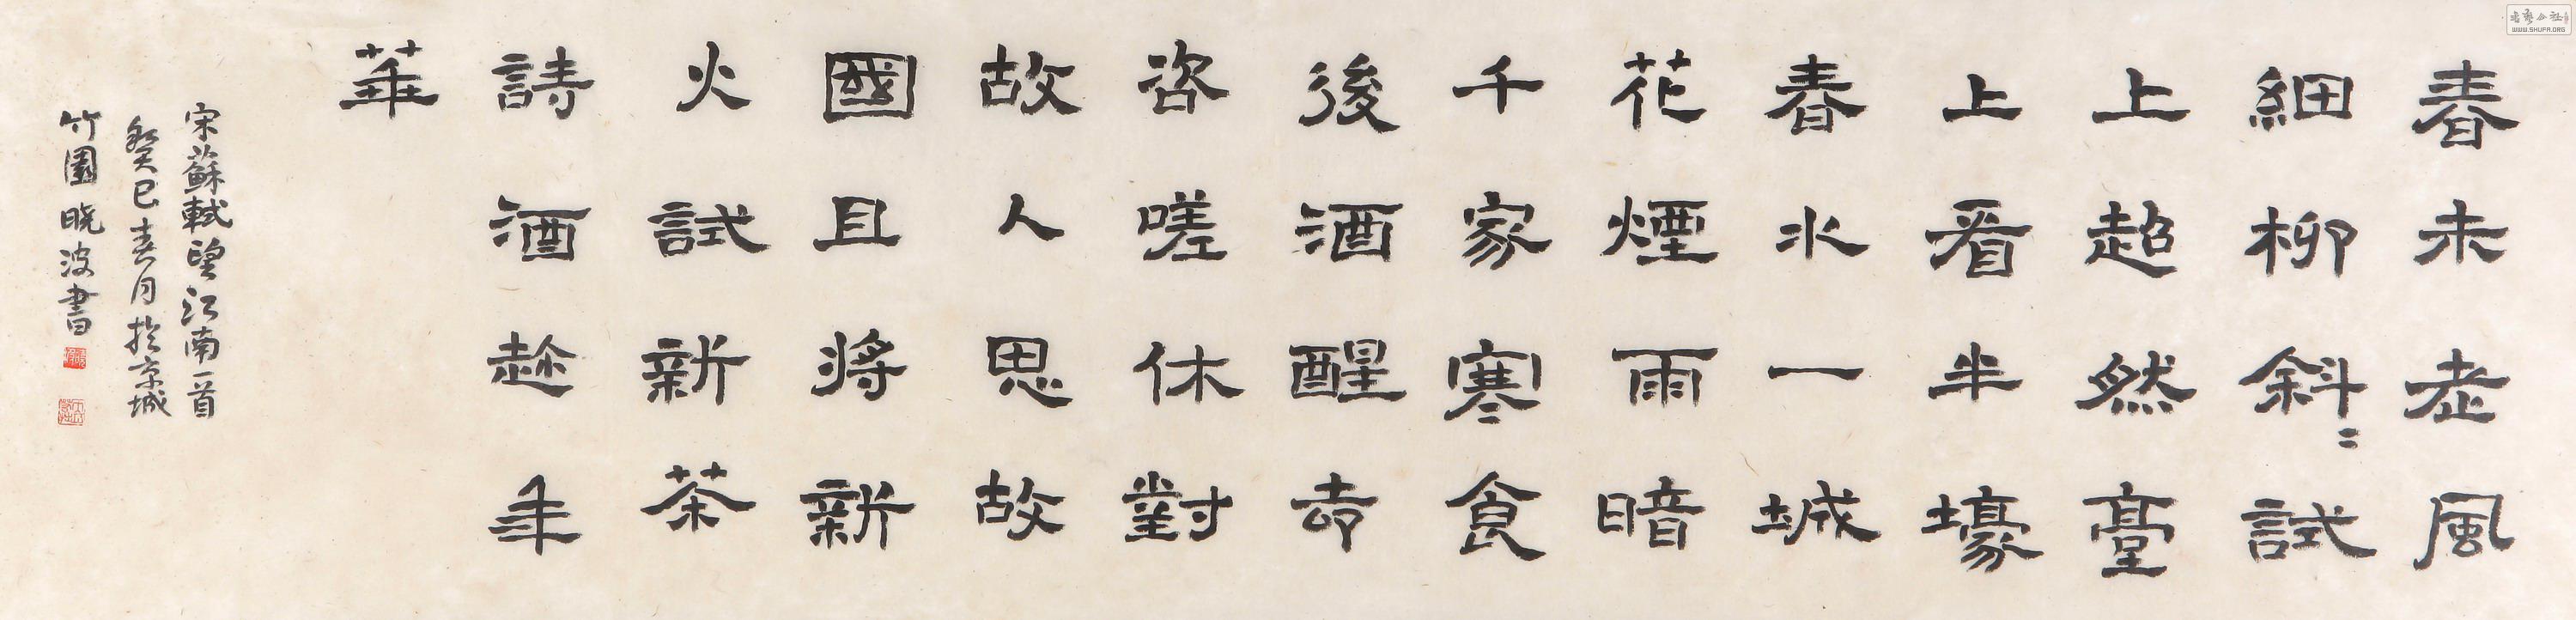 春未老風
細柳斜〻試
上超然臺
上看半壕
春水一城
花煙雨暗
千家寒食
後酒醒却
咨嗟休對
故人思故
國且將新
火試新茶
詩酒趂年
華
宋蘇軾望江南一首
癸巳春月於京城
竹園晓波書
WWW.SHUFA.ORG